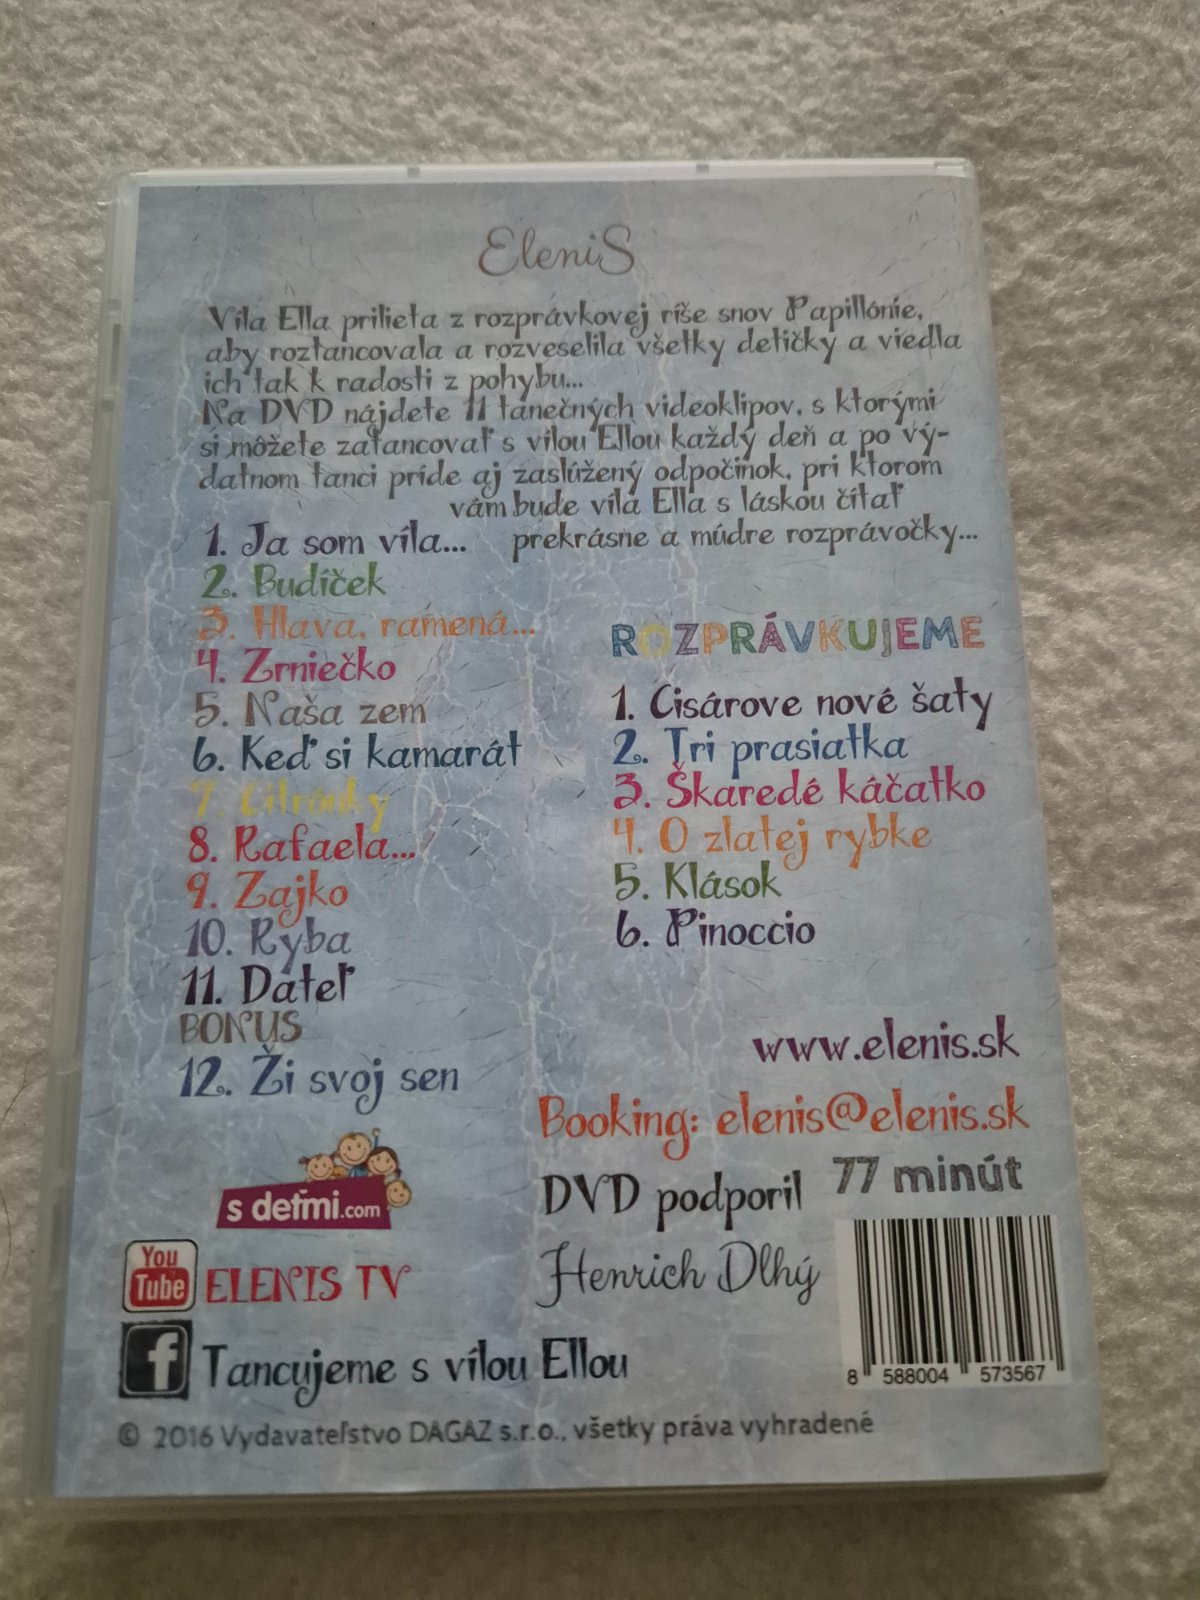 EleniS
Víla Ella prilieta z rozprávkovej ríše snov Papillónie,
aby roztancovala a rozveselila všetky detičky a viedla
ich tak k radosti z pohybu...
Na DVD nájdete 11 tanečných videoklipov, s ktorými
si môžete zatancovať s vílou Ellou každý deň a po vý-
datnom tanci príde aj zaslúžený odpočinok, pri ktorom
vám bude víla Ella s láskou čítať
prekrásne a múdre rozprávočky...
1. Ja som víla...
2. Budíček
3. Hlava, ramená...
4. Zrniečko
5. Naša zem
6. Keď si kamarát
7. Citrónky
8. Rafaela...
9. Zajko
10. Ryba
11. Dateľ
BONUS
12. Ži svoj sen
ROZPRÁVKUJEME
1. Cisárove nové šaty
2. Tri prasiatka
3. Škaredé káčatko
4. O zlatej rybke
5. Klások
6. Pinoccio
www.elenis.sk
Booking: elenis@elenis.sk
DVD podporil
Henrich Dlhý
77 minút
s deťmi.com
You Tube ELENIS TV
f Tancujeme s vílou Ellou
8 588004 573567
© 2016 Vydavateľstvo DAGAZ s.r.o., všetky práva vyhradené